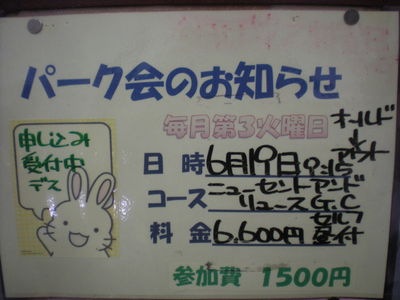 パーク会のお知らせ
毎月第3火曜日
申し込み
受付中
デス
日時 6月19日 9:15
コース ニューセントアンド
リュースG.C
料金 6.600円 セルフ
昼付
参加費 1500円